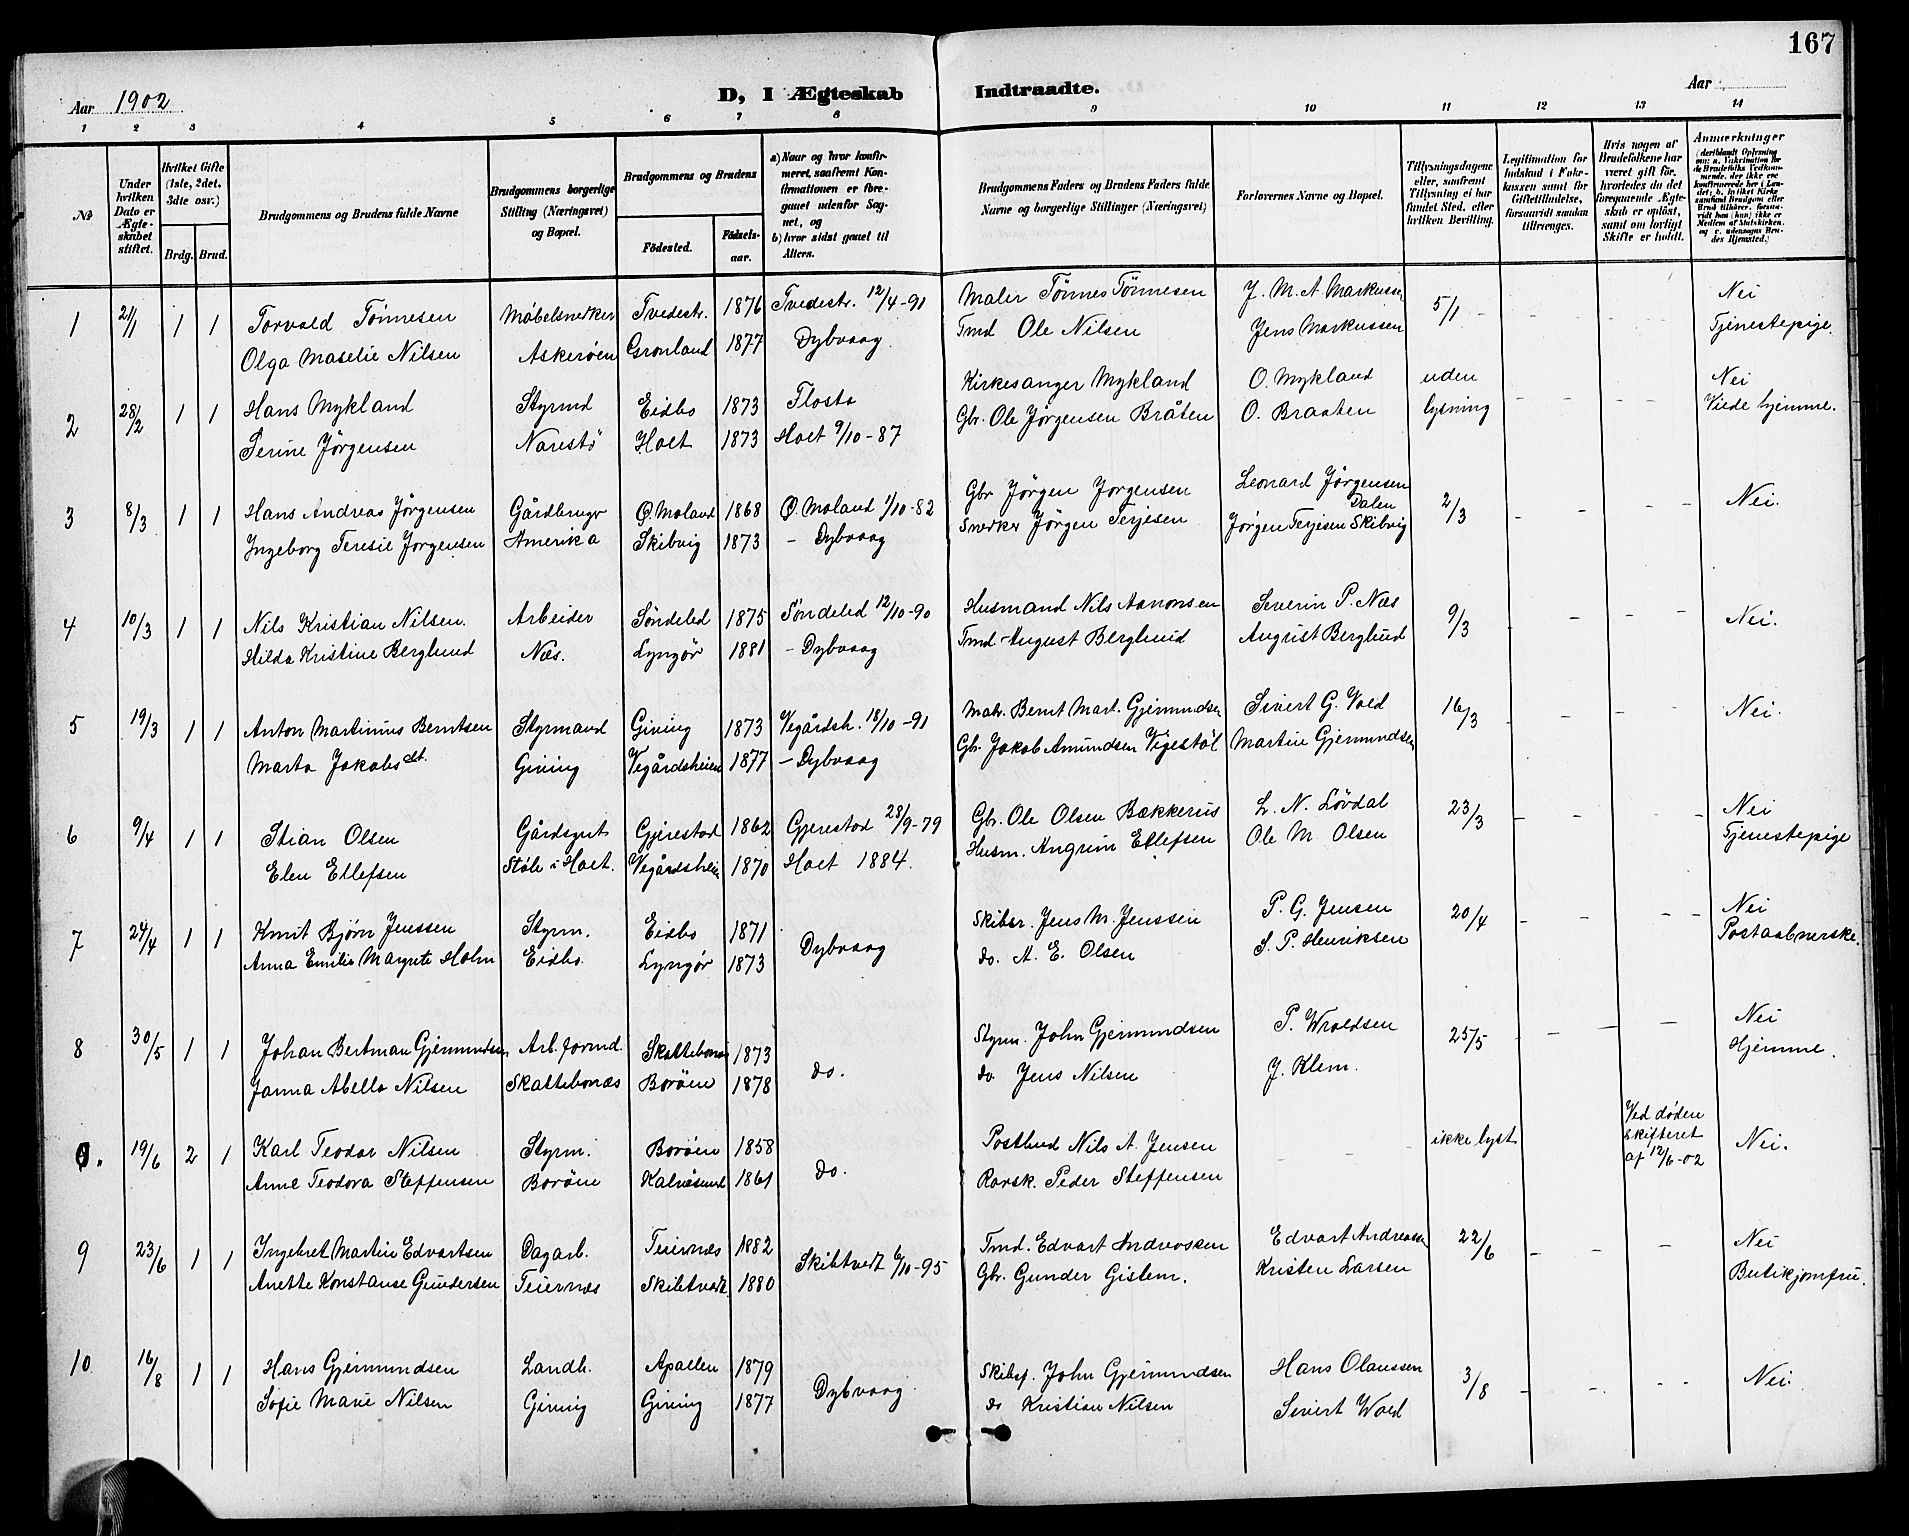 167
Aar 1902
D, I Ægteskab Indtraadte.
Aar
1 2 3 4 5 6 7 8 9 10 11 12 13 14
No
Under hvilken Dato er Ægteskabet stiftet.
Hvilket Gifte (1ste, 2det, 3dte osv.)
Brdg. Brud.
Brudgommens og Brudens fulde Navne
Brudgommens borgerlige Stilling (Næringsvei) og Bopæl.
Brudgommens og Brudens
Fødested. Fødselsaar.
a) Naar og hvor konfirmeret, saafremt Konfirmationen er foregaaet udenfor Sognet, og
b) hvor sidst gaaet til Alters.
Brudgommens Faders og Brudens Faders fulde Navne og borgerlige Stillinger (Næringsvei)
Forlovernes Navne og Bopæl.
Tillysningsdagene eller, saafremt Tillysning ei har fundet Sted, efter hvilken Bevilling.
Legitimation for Indskud i Enkekassen samt for Giftetilladelse, forsaavidt saadan tiltrænges.
Hvis nogen af Brudefolkene har været gift før, hvorledes da det foregaaende Ægteskab er opløst, samt om lovligt Skifte er holdt.
Anmerkninger
1 21/1 1 1 Torvald Tønnesen Møbelsnedker Tvedestr. 1876 Tvedestr. 12/4-91 Maler Tønnes Tønnesen J. M. A. Markussen 5/1 - - Nei
Olga Maselie Nilsen Askerøen Grønland 1877 Dybvaag. Tmd Ole Nilsen Jens Markussen Tjenestepige.
2 28/2 1 1 Hans Mykland Styrmd Eidbo 1873 Flosta Kirkesanger Mykland O. Mykland uden - - - - Nei
Serine Jørgensen Narestø Holt 1873 Holt 9/10-87 Gbr. Ole Jørgensen Bråten O. Braaten lysning Viede hjemme.
3 8/3 1 1 Hans Andreas Jørgensen Gårdbruger Ø. Moland 1868 Ø. Moland 1/10-82 Gbr Jørgen Jørgensen Leonard Jørgensen Dalen 2/3 - - - - Nei.
Ingeborg Teresie Jørgensen Amerika Skibvig 1873 - Dybvaag Snedker Jørgen Terjesen Jørgen Terjesen Skibvig
4 10/3 1 1 Nils Kristian Nilsen. Arbeider Søndeled 1875 Søndeled 12/10-90 Husmand Nils Aanonsen Severin P. Næs 9/3 - - - - Nei.
Hilda Kristine Berglund Næs. Lyngør 1881 - Dybvaag Tmd. August Berglund August Berglund
5 19/3 1 1 Anton Martinius Berntsen Styrmand Giving 1873 Vegårdsh. 18/10-91 Matr. Bernt Mart. Gjermundsen Sivert G. Vold 16/3 - - - - Nei.
Marta Jakobsdt. Giving Vegårdsheien 1877 - Dybvaag Gbr. Jakob Amundsen Vigestøl Martin Gjermundsen
6 9/4 1 1 Stian Olsen Gårdsgut Gjerestad 1862 Gjerestad 28/9-79 Gbr. Ole Olsen Bækkerus L. N. Løvdal 23/3 - - - - Nei
Elen Ellefsen Støle i Holt. Vegårdsheien 1870 Holt 1884. Husm. Angrim Ellefsen Ole M. Olsen Tjenestepige
7 24/4 1 1 Knut Bjørn Jenssen Styrm. Eidbo 1871 Dybvaag Skibsr. Jens M. Jenssen P. G. Jensen 20/4 - - - - Nei
Anna Emilie Margrete Holm Eidbo. Lyngør 1873 do. A. E. Olsen S. P. Henriksen Postaabnerske.
8 30/5 1 1 Johan Bertman Gjermundsen Arb. formd. Skattebonæs 1873 do. Styrm. John Gjermundsen P. Wroldsen 25/5 - - - Nei
Janna Abella Nilsen Skattebonæs Borøen 1878 do Jens Nilsen J. Klem. Hjemme.
0. 19/6 2 1 Karl Teodor Nilsen Styrm. Borøen 1858 do. Postbud Nils A. Jensen - - ikke lyst Ved døden skifteret af 12/6-02 Nei.
Anne Teodora Steffensen Borøen Kalvøsund 1861 Peder Steffensen
9 23/6 1 1 Ingebret Martin Edvartsen Dagarb. Teiernæs 1882 Skibtvedt 6/10-95 Tmd. Edvart Andreasen Edvart Andreassen 22/6 - - - Nei
Anette Konstanse Gundersen Teiernæs Skibtvedt 1880 Gbr. Gunder Gislem. Kristen Larsen Butikjomfru.
10 16/8 1 1 Hans Gjermundsen Landh. Apallen 1879 Dybvaag. Skibsf. John Gjermundsen Hans Olaussen 3/8 - - - - Nei.
Sofie Marie Nilsen Giving Giving 1877 do Kristian Nilsen Sivert Wold